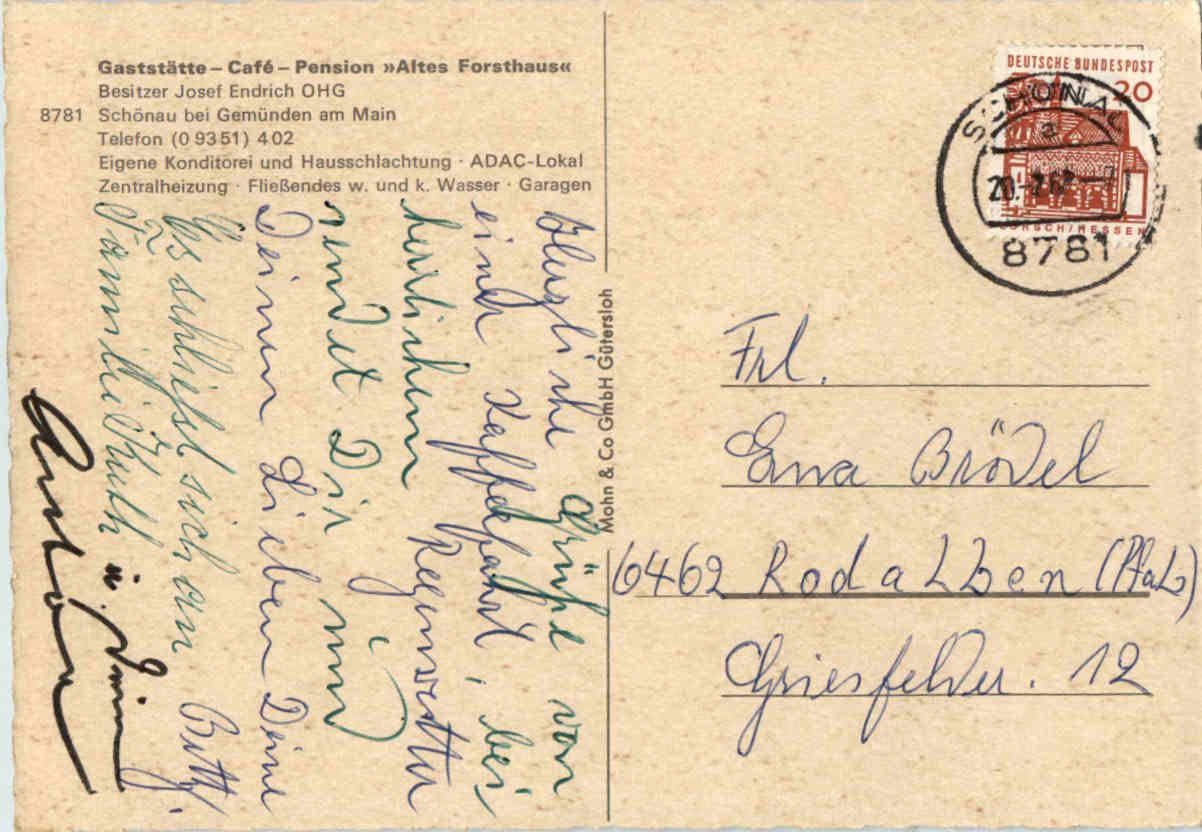 Gaststätte – Café – Pension »Altes Forsthaus«
Besitzer Josef Endrich OHG
8781 Schönau bei Gemünden am Main
Telefon (0 93 51) 4 02
Eigene Konditorei und Hausschlachtung · ADAC-Lokal
Zentralheizung · Fließendes w. und k. Wasser · Garagen
Herzliche Grüße von
einer Kaffeefahrt, bei
herrlichem Regenwetter
sendet Dir und
Deinen Lieben Deine
Betty.
Es schließt sich an
Familie
Anton
Mohn & Co GmbH Gütersloh
DEUTSCHE BUNDESPOST
20
LORSCH/HESSEN
SCHÖNAU
a
8781
Frl.
Erna Brödel
6462 Rodalben (Pfalz)
Griesfelder. 12